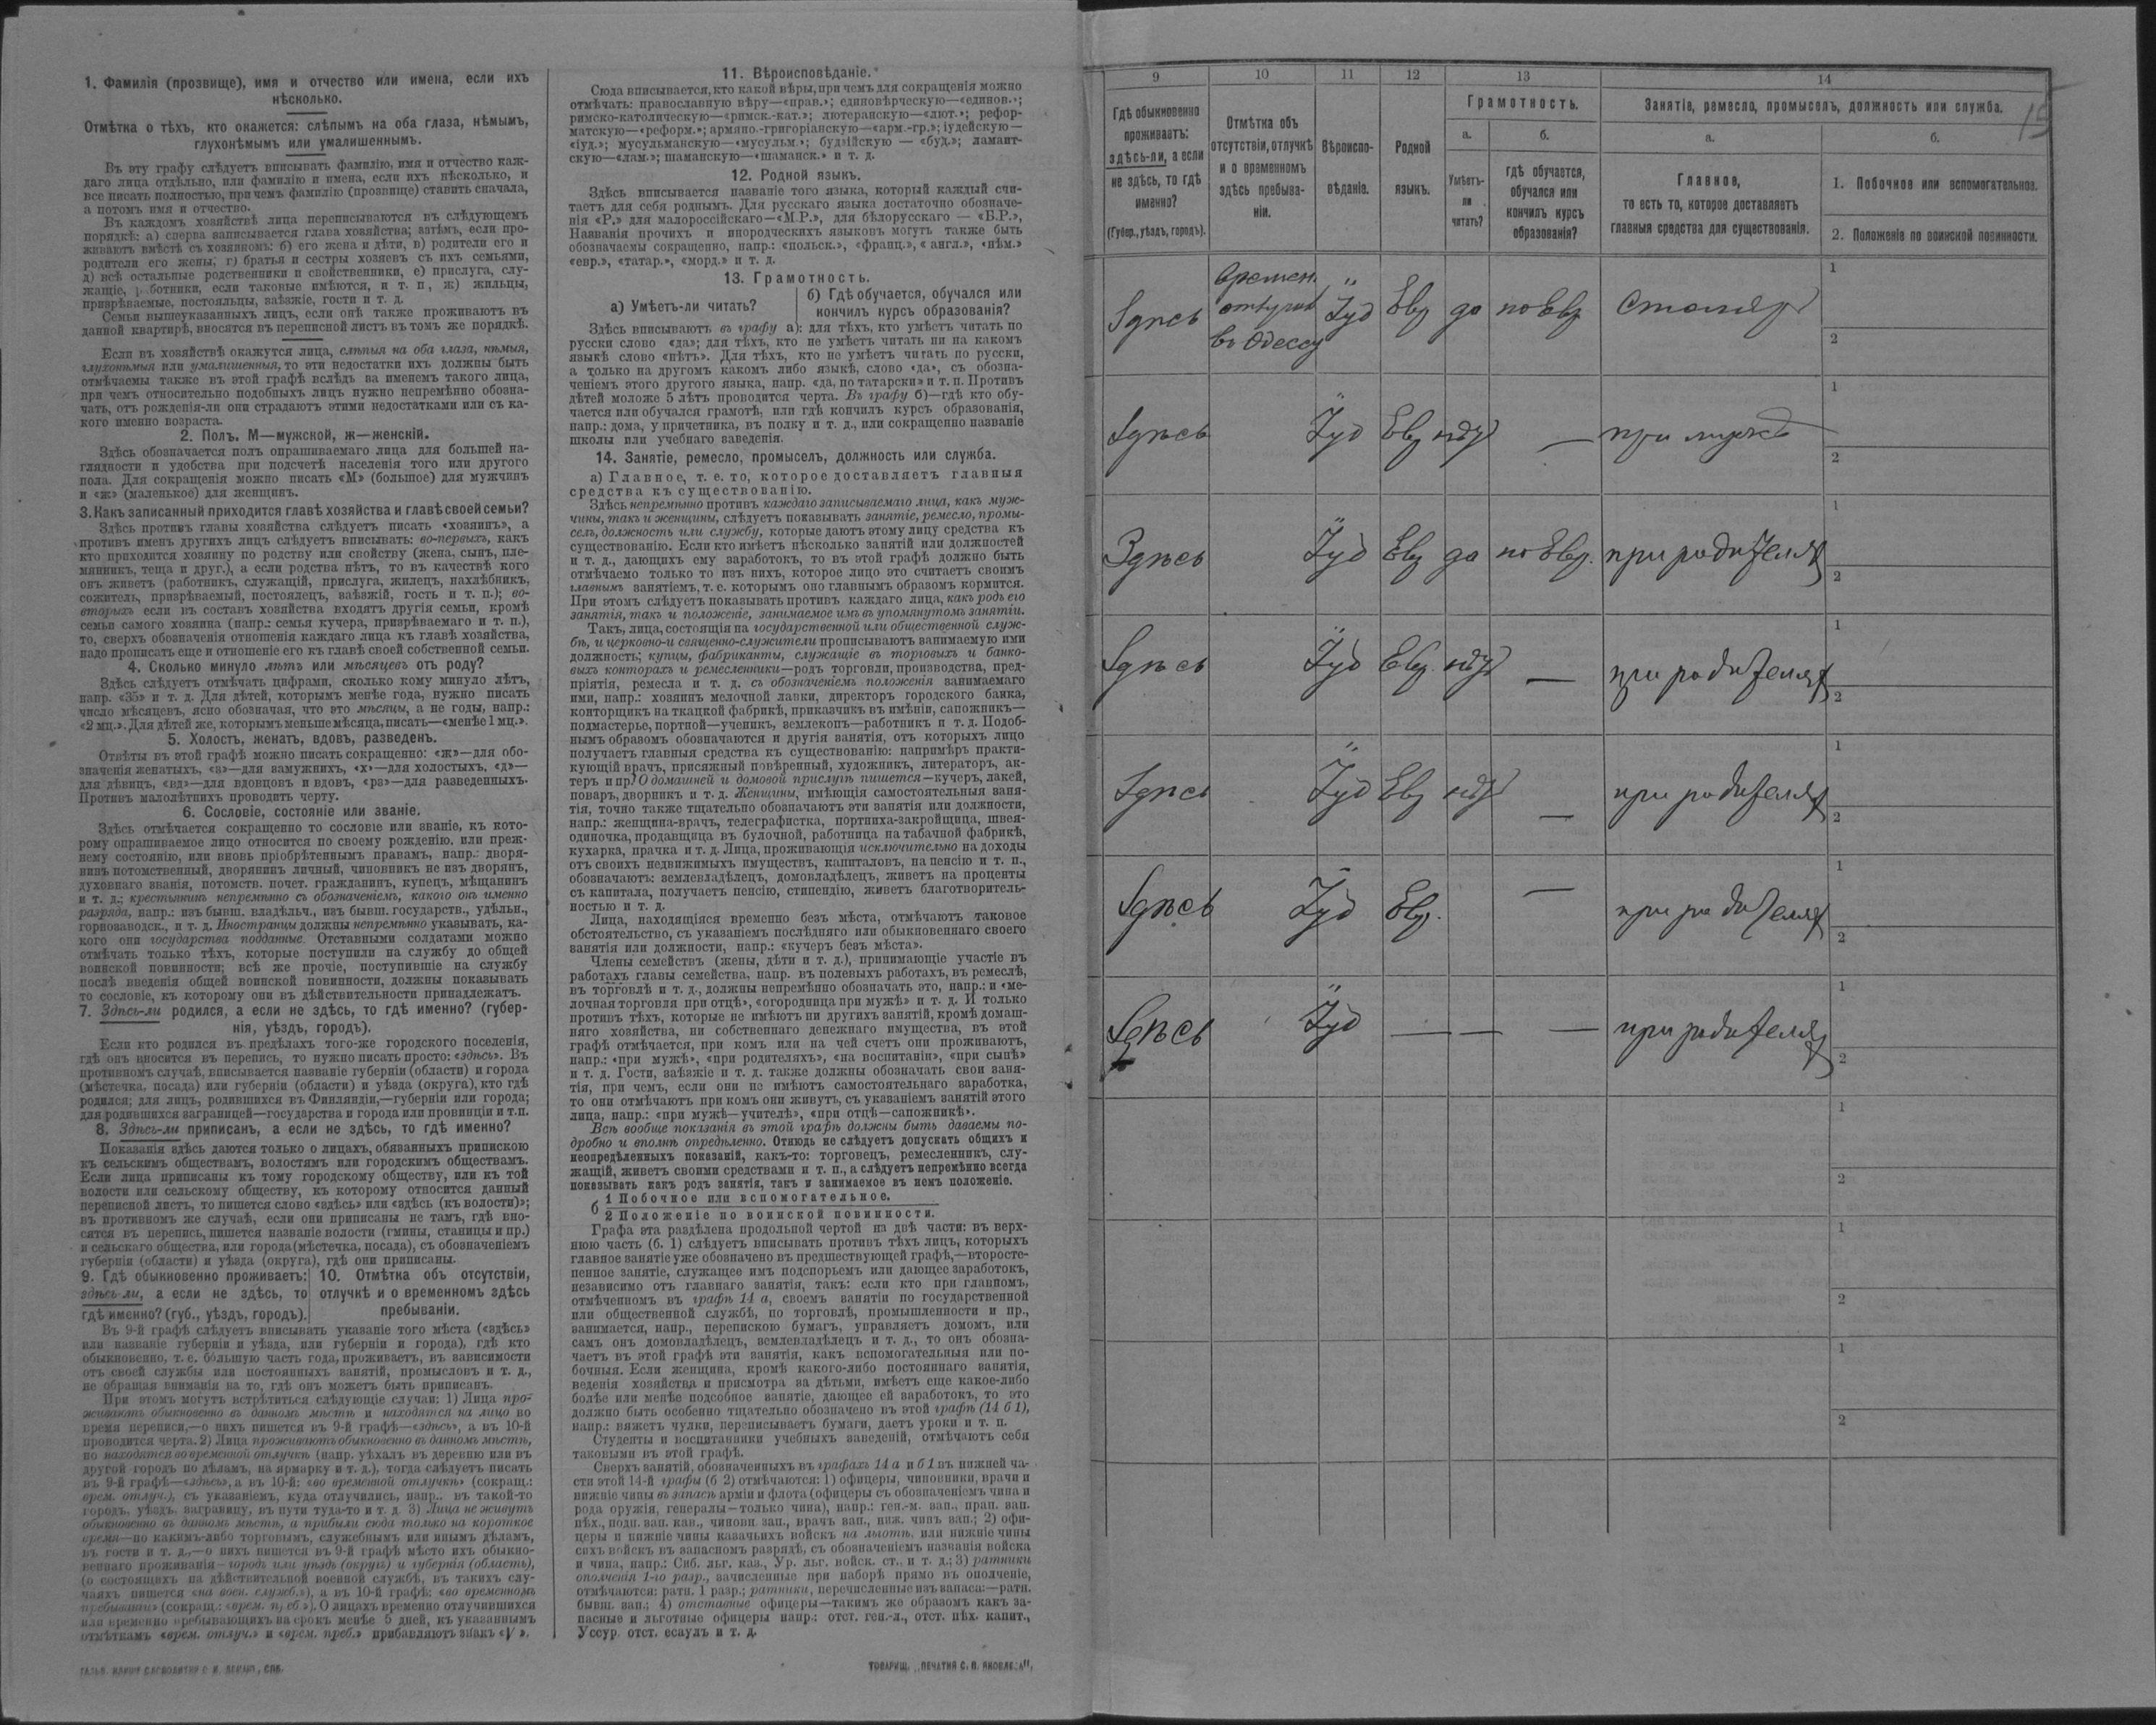 1. Фамилія (прозвище), имя и отчество или имена, если ихъ
нѣсколько.
Отмѣтка о тѣхъ, кто окажется: слѣпымъ на оба глаза, нѣмымъ,
глухонѣмымъ или умалишеннымъ.
Въ эту графу слѣдуетъ вписывать фамилію, имя и отчество каж-
даго лица отдѣльно, или фамилію и имена, если ихъ нѣсколько, и
все писать полностью, при чемъ фамилію (прозвище) ставить сначала,
а потомъ имя и отчество.
Въ каждомъ хозяйствѣ лица переписываются въ слѣдующемъ
порядкѣ: а) сперва записывается глава хозяйства; затѣмъ, если про-
живаютъ вмѣстѣ съ хозяиномъ: б) его жена и дѣти, в) родители его и
родители его жены, г) братья и сестры хозяевъ съ ихъ семьями,
д) всѣ остальные родственники и свойственники, е) прислуга, слу-
жащіе, работники, если таковые имѣются, и т. п, ж) жильцы,
призрѣваемые, постояльцы, заѣзжіе, гости и т. д.
Семьи вышеуказанныхъ лицъ, если онѣ также проживаютъ въ
данной квартирѣ, вносятся въ переписной листъ въ томъ же порядкѣ.
Если въ хозяйствѣ окажутся лица, слѣпыя на оба глаза, нѣмыя,
глухонѣмыя или умалишенныя, то эти недостатки ихъ должны быть
отмѣчаемы также въ этой графѣ вслѣдъ за именемъ такого лица,
при чемъ относительно подобныхъ лицъ нужно непремѣнно обозна-
чать, отъ рожденія-ли они страдаютъ этими недостатками или съ ка-
кого именно возраста.
2. Полъ. М—мужской, ж—женскій.
Здѣсь обозначается полъ опрашиваемаго лица для большей на-
глядности и удобства при подсчетѣ населенія того или другого
пола. Для сокращенія можно писать «М» (большое) для мужчинъ
и «ж» (маленькое) для женщинъ.
3. Какъ записанный приходится главѣ хозяйства и главѣ своей семьи?
Здѣсь противъ главы хозяйства слѣдуетъ писать «хозяинъ», а
противъ именъ другихъ лицъ слѣдуетъ вписывать: во-первыхъ, какъ
кто приходится хозяину по родству или свойству (жена, сынъ, пле-
мянникъ, теща и друг.), а если родства нѣтъ, то въ качествѣ кого
онъ живетъ (работникъ, служащій, прислуга, жилецъ, нахлѣбникъ,
сожитель, призрѣваемый, постоялецъ, заѣзжій, гость и т. п.); во-
вторыхъ если въ составъ хозяйства входятъ другія семьи, кромѣ
семьи самого хозяина (напр.: семья кучера, призрѣваемаго и т. п.),
то, сверхъ обозначенія отношенія каждаго лица къ главѣ хозяйства,
надо прописать еще и отношеніе его къ главѣ своей собственной семьи.
4. Сколько минуло лѣтъ или мѣсяцевъ отъ роду?
Здѣсь слѣдуетъ отмѣчать цифрами, сколько кому минуло лѣтъ,
напр. «35» и т. д. Для дѣтей, которымъ менѣе года, нужно писать
число мѣсяцевъ, ясно обозначая, что это мѣсяцы, а не годы, напр.:
«2 мц.». Для дѣтей же, которымъ меньше мѣсяца, писать—«менѣе 1 мц.».
5. Холостъ, женатъ, вдовъ, разведенъ.
Отвѣты въ этой графѣ можно писать сокращенно: «ж»—для обо-
значенія женатыхъ, «з»—для замужнихъ, «х»—для холостыхъ, «д»—
для дѣвицъ, «вд»—для вдовцовъ и вдовъ, «рз»—для разведенныхъ.
Противъ малолѣтнихъ проводить черту.
6. Сословіе, состояніе или званіе.
Здѣсь отмѣчается сокращенно то сословіе или званіе, къ кото-
рому опрашиваемое лицо относится по своему рожденію, или преж-
нему состоянію, или вновь пріобрѣтеннымъ правамъ, напр.: дворя-
нинъ потомственный, дворянинъ личный, чиновникъ не изъ дворянъ,
духовнаго званія, потомств. почет. гражданинъ, купецъ, мѣщанинъ
и т. д.; крестьянинъ непремѣнно съ обозначеніемъ, какого онъ именно
разряда, напр.: изъ бывш. владѣльч., изъ бывш. государств., удѣльн.,
горнозаводск., и т. д. Иностранцы должны непремѣнно указывать, ка-
кого они государства подданные. Отставными солдатами можно
отмѣчать только тѣхъ, которые поступили на службу до общей
воинской повинности; всѣ же прочіе, поступившіе на службу
послѣ введенія общей воинской повинности, должны показывать
то сословіе, къ которому они въ дѣйствительности принадлежатъ.
7. Здѣсь-ли родился, а если не здѣсь, то гдѣ именно? (губер-
нія, уѣздъ, городъ).
Если кто родился въ предѣлахъ того-же городского поселенія,
гдѣ онъ вносится въ перепись, то нужно писать просто: «здѣсь». Въ
противномъ случаѣ, вписывается названіе губерніи (области) и города
(мѣстечка, посада) или губерніи (области) и уѣзда (округа), кто гдѣ
родился; для лицъ, родившихся въ Финляндіи,—губерніи или города;
для родившихся заграницей—государства и города или провинціи и т.п.
8. Здѣсь-ли приписанъ, а если не здѣсь, то гдѣ именно?
Показанія здѣсь даются только о лицахъ, обязанныхъ припискою
къ сельскимъ обществамъ, волостямъ или городскимъ обществамъ.
Если лица приписаны къ тому городскому обществу, или къ той
волости или сельскому обществу, къ которому относится данный
переписной листъ, то пишется слово «здѣсь» или «здѣсь (къ волости)»;
въ противномъ же случаѣ, если они приписаны не тамъ, гдѣ вно-
сятся въ перепись, пишется названіе волости (гмины, станицы и пр.)
и сельскаго общества, или города (мѣстечка, посада), съ обозначеніемъ
губерніи (области) и уѣзда (округа), гдѣ они приписаны.
9. Гдѣ обыкновенно проживаетъ:
здѣсь-ли, а если не здѣсь, то
гдѣ именно? (губ., уѣздъ, городъ).
10. Отмѣтка объ отсутствіи,
отлучкѣ и о временномъ здѣсь
пребываніи.
Въ 9-й графѣ слѣдуетъ вписывать указаніе того мѣста («здѣсь»
или названіе губерніи и уѣзда, или губерніи и города), гдѣ кто
обыкновенно, т. е. большую часть года, проживаетъ, въ зависимости
отъ своей службы или постоянныхъ занятій, промысловъ и т. д.,
не обращая вниманія на то, гдѣ онъ можетъ быть приписанъ.
При этомъ могутъ встрѣтиться слѣдующіе случаи: 1) Лица про-
живаютъ обыкновенно въ данномъ мѣстѣ и находятся на лицо во
время переписи,—о нихъ пишется въ 9-й графѣ—«здѣсь», а въ 10-й
проводится черта. 2) Лица проживаютъ обыкновенно въ данномъ мѣстѣ,
но находятся во временной отлучкѣ (напр. уѣхалъ въ деревню или въ
другой городъ по дѣламъ, на ярмарку и т. д.), тогда слѣдуетъ писать
въ 9-й графѣ—«здѣсь», а въ 10-й: «во временной отлучкѣ» (сокращ.:
врем. отлуч.), съ указаніемъ, куда отлучились, напр., въ такой-то
городъ, уѣздъ, заграницу, въ пути туда-то и т. д. 3) Лица не живутъ
обыкновенно въ данномъ мѣстѣ, а прибыли сюда только на короткое
время—по какимъ-либо торговымъ, служебнымъ или инымъ дѣламъ,
въ гости и т. д.,—о нихъ пишется въ 9-й графѣ мѣсто ихъ обыкно-
веннаго проживанія—городъ или уѣздъ (округъ) и губернія (область),
(о состоящихъ на дѣйствительной военной службѣ, въ такихъ слу-
чаяхъ пишется «на воен. служб.»), а въ 10-й графѣ: «во временномъ
пребываніи» (сокращ.: «врем. преб.»). О лицахъ временно отлучившихся
или временно пребывающихъ на срокъ менѣе 5 дней, къ указаннымъ
отмѣткамъ «врем. отлуч.» и «врем. преб.» прибавляютъ знакъ «V».
11. Вѣроисповѣданіе.
Сюда вписывается, кто какой вѣры, при чемъ для сокращенія можно
отмѣчать: православную вѣру—«прав.»; единовѣрческую—«единов.»;
римско-католическую—«римск.-кат.»; лютеранскую—«лют.»; рефор-
матскую—«реформ.»; армяно.-григоріанскую—«арм.-гр.»; іудейскую—
«іуд.»; мусульманскую—«мусульм.»; буддійскую — «буд.»; ламаит-
скую—«лам.»; шаманскую—«шаманск.» и т. д.
12. Родной языкъ.
Здѣсь вписывается названіе того языка, который каждый счи-
таетъ для себя роднымъ. Для русскаго языка достаточно обозначе-
нія «Р.» для малороссійскаго—«М.Р.», для бѣлорусскаго — «Б.Р.»,
Названія прочихъ и инородческихъ языковъ могутъ также быть
обозначаемы сокращенно, напр.: «польск.», «франц.», « англ.», «нѣм.»
«евр.», «татар.», «морд.» и т. д.
13. Грамотность.
а) Умѣетъ-ли читать?
б) Гдѣ обучается, обучался или
кончилъ курсъ образованія?
Здѣсь вписываютъ въ графу а): для тѣхъ, кто умѣетъ читать по
русски слово «да»; для тѣхъ, кто не умѣетъ читать ни на какомъ
языкѣ слово «нѣтъ». Для тѣхъ, кто не умѣетъ читать по русски,
а только на другомъ какомъ либо языкѣ, слово «да», съ обозна-
ченіемъ этого другого языка, напр. «да, по татарски» и т. п. Противъ
дѣтей моложе 5 лѣтъ проводится черта. Въ графу б)—гдѣ кто обу-
чается или обучался грамотѣ, или гдѣ кончилъ курсъ образованія,
напр.: дома, у причетника, въ полку и т. д., или сокращенно названіе
школы или учебнаго заведенія.
14. Занятіе, ремесло, промыселъ, должность или служба.
а) Главное, т. е. то, которое доставляетъ главныя
средства къ существованію.
Здѣсь непремѣнно противъ каждаго записываемаго лица, какъ муж-
чины, такъ и женщины, слѣдуетъ показывать занятіе, ремесло, промы-
селъ, должность или службу, которые даютъ этому лицу средства къ
существованію. Если кто имѣетъ нѣсколько занятій или должностей
и т. д., дающихъ ему заработокъ, то въ этой графѣ должно быть
отмѣчаемо только то изъ нихъ, которое лицо это считаетъ своимъ
главнымъ занятіемъ, т. е. которымъ оно главнымъ образомъ кормится.
При этомъ слѣдуетъ показывать противъ каждаго лица, какъ родъ его
занятія, такъ и положеніе, занимаемое имъ въ упомянутомъ занятіи.
Такъ, лица, состоящія на государственной или общественной служ-
бѣ, и церковно-и священно-служители прописываютъ занимаемую ими
должность; купцы, фабриканты, служащіе въ торговыхъ и банко-
выхъ конторахъ и ремесленники—родъ торговли, производства, пред-
пріятія, ремесла и т. д. съ обозначеніемъ положенія занимаемаго
ими, напр.: хозяинъ мелочной лавки, директоръ городского банка,
конторщикъ на ткацкой фабрикѣ, приказчикъ въ имѣніи, сапожникъ—
подмастерье, портной—ученикъ, землекопъ—работникъ и т. д. Подоб-
нымъ образомъ обозначаются и другія занятія, отъ которыхъ лицо
получаетъ главныя средства къ существованію: напримѣръ практи-
кующій врачъ, присяжный повѣренный, художникъ, литераторъ, ак-
теръ и пр. О домашней и домовой прислугѣ пишется—кучеръ, лакей,
поваръ, дворникъ и т. д. Женщины, имѣющія самостоятельныя заня-
тія, точно также тщательно обозначаютъ эти занятія или должности,
напр.: женщина-врачъ, телеграфистка, портниха-закройщица, швея-
одиночка, продавщица въ булочной, работница на табачной фабрикѣ,
кухарка, прачка и т. д. Лица, проживающія исключительно на доходы
отъ своихъ недвижимыхъ имуществъ, капиталовъ, на пенсію и т. п.,
обозначаютъ: землевладѣлецъ, домовладѣлецъ, живетъ на проценты
съ капитала, получаетъ пенсію, стипендію, живетъ благотворитель-
ностью и т. д.
Лица, находящіяся временно безъ мѣста, отмѣчаютъ таковое
обстоятельство, съ указаніемъ послѣдняго или обыкновеннаго своего
занятія или должности, напр.: «кучеръ безъ мѣста».
Члены семействъ (жены, дѣти и т. д.), принимающіе участіе въ
работахъ главы семейства, напр. въ полевыхъ работахъ, въ ремеслѣ,
въ торговлѣ и т. д., должны непремѣнно обозначать это, напр.: и «ме-
лочная торговля при отцѣ», «огородница при мужѣ» и т. д. И только
противъ тѣхъ, которые не имѣютъ ни другихъ занятій, кромѣ домаш-
няго хозяйства, ни собственнаго денежнаго имущества, въ этой
графѣ отмѣчается, при комъ или на чей счетъ они проживаютъ,
напр.: «при мужѣ», «при родителяхъ», «на воспитаніи», «при сынѣ»
и т. д. Гости, заѣзжіе и т. д. также должны обозначать свои заня-
тія, при чемъ, если они не имѣютъ самостоятельнаго заработка,
то они отмѣчаютъ при комъ они живутъ, съ указаніемъ занятій этого
лица, напр.: «при мужѣ—учителѣ», «при отцѣ—сапожникѣ».
Всѣ вообще показанія въ этой графѣ должны быть даваемы по-
дробно и вполнѣ опредѣленно. Отнюдь не слѣдуетъ допускать общихъ и
неопредѣленныхъ показаній, какъ-то: торговецъ, ремесленникъ, слу-
жащій, живетъ своими средствами и т. п., а слѣдуетъ непремѣнно всегда
показывать какъ родъ занятія, такъ и занимаемое въ немъ положеніе.
б
1 Побочное или вспомогательное.
2 Положеніе по воинской повинности.
Графа эта раздѣлена продольной чертой на двѣ части: въ верх-
нюю часть (б. 1) слѣдуетъ вписывать противъ тѣхъ лицъ, которыхъ
главное занятіе уже обозначено въ предшествующей графѣ,—второсте-
пенное занятіе, служащее имъ подспорьемъ или дающее заработокъ,
независимо отъ главнаго занятія, такъ: если кто при главномъ,
отмѣченномъ въ графѣ 14 а, своемъ занятіи по государственной
или общественной службѣ, по торговлѣ, промышленности и пр.,
занимается, напр., перепискою бумагъ, управляетъ домомъ, или
самъ онъ домовладѣлецъ, землевладѣлецъ и т. д., то онъ обозна-
чаетъ въ этой графѣ эти занятія, какъ вспомогательныя или по-
бочныя. Если женщина, кромѣ какого-либо постояннаго занятія,
веденія хозяйства и присмотра за дѣтьми, имѣетъ еще какое-либо
болѣе или менѣе подсобное занятіе, дающее ей заработокъ, то это
должно быть особенно тщательно обозначено въ этой графѣ (14 б 1),
напр.: вяжетъ чулки, переписываетъ бумаги, даетъ уроки и т. п.
Студенты и воспитанники учебныхъ заведеній, отмѣчаютъ себя
таковыми въ этой графѣ.
Сверхъ занятій, обозначенныхъ въ графахъ 14 а и б 1 въ нижней ча-
сти этой 14-й графы (б 2) отмѣчаются: 1) офицеры, чиновники, врачи и
нижніе чины въ запасѣ арміи и флота (офицеры съ обозначеніемъ чина и
рода оружія, генералы—только чина), напр.: ген.-м. зап., прап. зап.
пѣх., подп. зап. кав., чиновн. зап., врачъ зап., ниж. чинъ зап.; 2) офи-
церы и нижніе чины казачьихъ войскъ на льготѣ, или нижніе чины
сихъ войскъ въ запасномъ разрядѣ, съ обозначеніемъ названія войска
и чина, напр.: Сиб. льг. каз., Ур. льг. войск. ст., и т. д.; 3) ратники
ополченія 1-го разр., зачисленные при наборѣ прямо въ ополченіе,
отмѣчаются: ратн. 1 разр.; ратники, перечисленные изъ запаса:—ратн.
бывш. зап.; 4) отставные офицеры—такимъ же образомъ какъ за-
пасные и льготные офицеры напр.: отст. ген.-л., отст. пѣх. капит.,
Уссур. отст. есаулъ и т. д.
ТОВАРИЩ. „ПЕЧАТНЯ С. П. ЯКОВЛЕВА",
15
9 10 11 12 13 14
Гдѣ обыкновенно
проживаетъ:
здѣсь-ли, а если
не здѣсь, то гдѣ
именно?
(Губер., уѣздъ, городъ).
Отмѣтка объ
отсутствіи, отлучкѣ
и о временномъ
здѣсь пребыва-
ніи.
Вѣроиспо-
вѣданіе.
Родной
языкъ.
Грамотность.
а.
Умѣетъ-
ли
читать?
б.
гдѣ обучается,
обучался или
кончилъ курсъ
образованія?
Занятіе, ремесло, промыселъ, должность или служба.
а.
Главное,
то есть то, которое доставляетъ
главныя средства для существованія.
б.
1. Побочное или вспомогательное.
2. Положеніе по воинской повинности.
Здѣсь
времен.
въ Одессу
Іуд Евр да по Евр Столяр
1
2
Здѣсь Іуд Евр нѣт — при мужѣ
1
2
Здѣсь Іуд Евр да по Евр. при родителях
1
2
Здѣсь Іуд Евр. нѣт — при родителях
1
2
Здѣсь Іуд Евр нѣт — при родителях
1
2
Здѣсь Іуд Евр. — при родителях
1
2
Здѣсь Іуд — — — при родителях
1
2
1
2
1
2
1
2